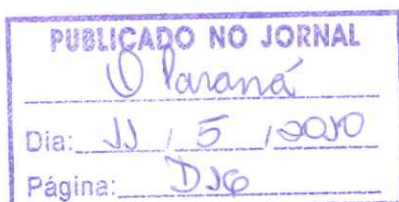 PUBLICADO NO JORNAL
O Paraná
Dia: 11 / 5 / 2010
Página: D16